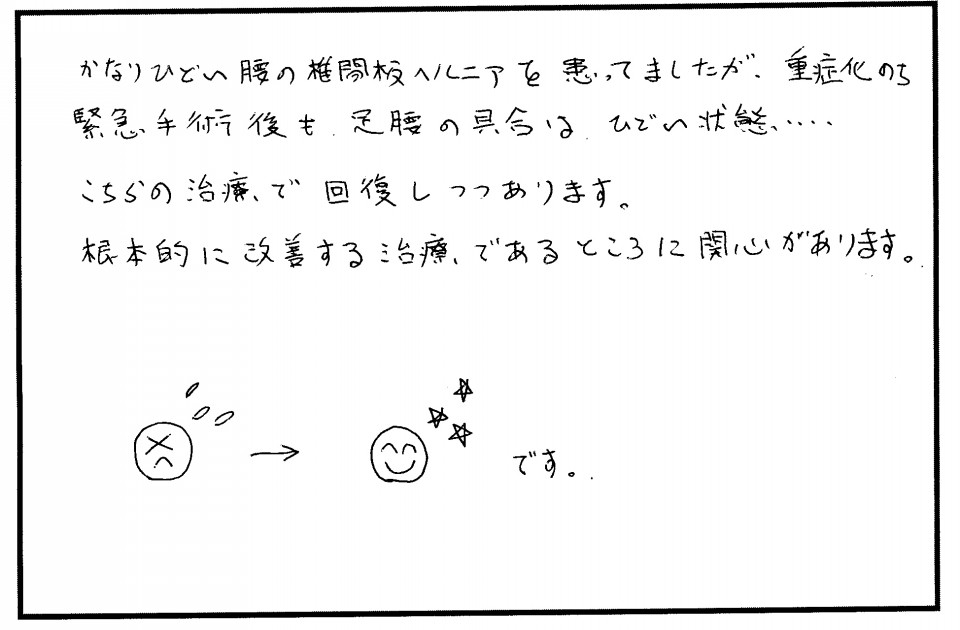 かなりひどい腰の椎間板ヘルニアを患ってましたが、重症化のち
緊急手術後も、足腰の具合は、ひどい状態、‥‥
こちらの治療、で回復しつつあります。
根本的に改善する治療、であるところに関心があります。
です。